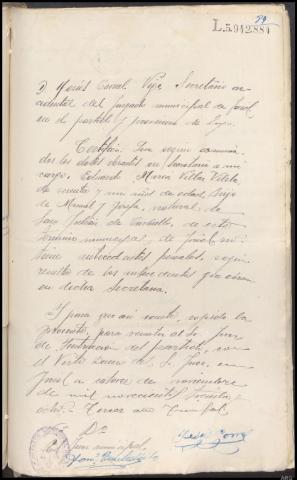 L.5.942.884
D Jesús Corral Vije, Secretario ac
cidental del Juzgado municipal de Friol
en el partido y provincia de Lugo.
Certifico: Que según
los datos obrantes en Secretaría a mi
cargo, Eduardo María Villar Varela
de treinta y un años de edad, hijo
de Manuel y Josefa, natural de
San Julián de de este
término municipal de Friol, no
tiene antecedentes penales, según
resulta de los antecedentes que obran
en dicha Secretaría.
Y para que así conste, expido la
presente, para remitir al Sr. Juez
de Instrucción del partido, con
el Visto Bueno del Sr. Juez, en
Friol a catorce de noviembre
de mil novecientos treinta y
ocho. Tercer año Triunfal.
Juez municipal,
ARG